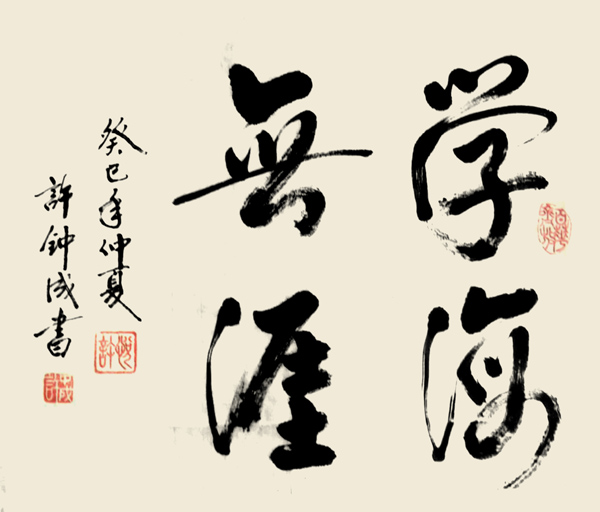 学海
無涯
癸巳年仲夏
許鈡成書